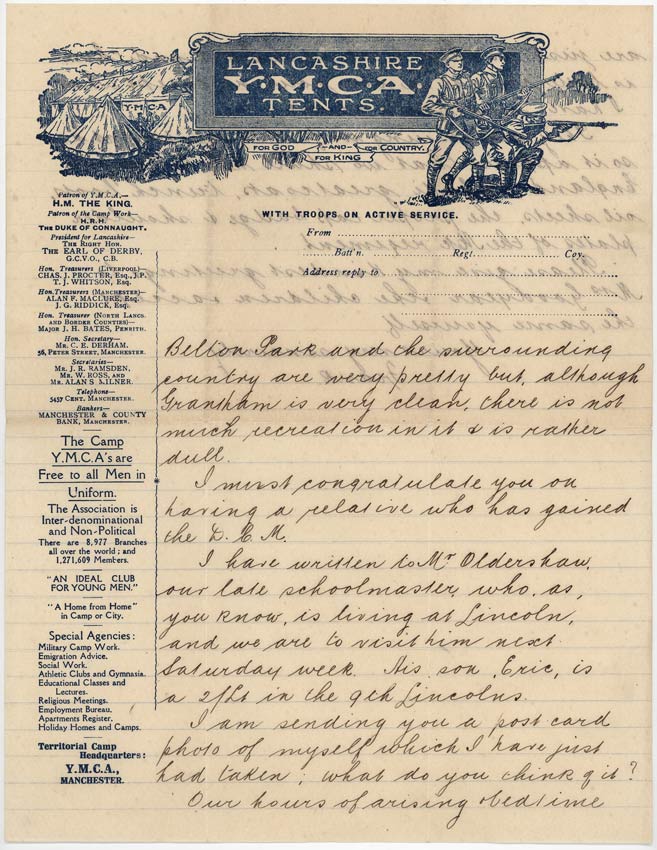 LANCASHIRE
Y.M.C.A.
TENTS.
Y·M·C·A
FOR GOD —AND— FOR COUNTRY.
FOR KING
WITH TROOPS ON ACTIVE SERVICE.
From
Batt'n. Regt. Coy.
Address reply to
Patron of Y.M.C.A.—
H.M. THE KING.
Patron of the Camp Work—
H.R.H.
THE DUKE OF CONNAUGHT.
President for Lancashire—
THE RIGHT HON.
THE EARL OF DERBY,
G.C.V.O., C.B.
Hon. Treasurers (LIVERPOOL)—
CHAS. J. PROCTER, ESQ., J.P.
T. J. WHITSON, ESQ.
Hon. Treasurers (MANCHESTER)—
ALAN F. MACLURE, ESQ.
J. G. RIDDICK, ESQ.
Hon. Treasurer (NORTH LANCS.
AND BORDER COUNTIES)—
MAJOR J. H. BATES, PENRITH.
Hon. Secretary—
MR. C. E. DERHAM.
56, PETER STREET, MANCHESTER.
Secretaries—
MR. J. R. RAMSDEN,
MR. W. ROSS, AND
MR. ALAN S MILNER.
Telephone—
5457 CENT. MANCHESTER.
Bankers—
MANCHESTER & COUNTY
BANK, MANCHESTER.
The Camp
Y.M.C.A's are
Free to all Men in
Uniform.
The Association is
Inter-denominational
and Non-Political
There are 8,977 Branches
all over the world; and
1,271,609 Members.
"AN IDEAL CLUB
FOR YOUNG MEN."
"A Home from Home"
in Camp or City.
Special Agencies:
Military Camp Work.
Emigration Advice.
Social Work.
Athletic Clubs and Gymnasia.
Educational Classes and
Lectures.
Religious Meetings.
Employment Bureau.
Apartments Register.
Holiday Homes and Camps.
Territorial Camp
Headquarters:
Y.M.C.A.,
MANCHESTER.
Belton Park and the surrounding
country are very pretty but, although
Grantham is very clean, there is not
much recreation in it & is rather
dull.
I must congratulate you on
having a relative who has gained
the D.C.M.
I have written to Mr Oldershaw,
our late schoolmaster, who, as,
you know, is living at Lincoln,
and we are to visit him next
Saturday week. His son, Eric, is
a 2/Lt in the 9th Lincolns.
I am sending you a post card
photo of myself which I have just
had taken; what do you think of it?
Our hours of arising & bedtime